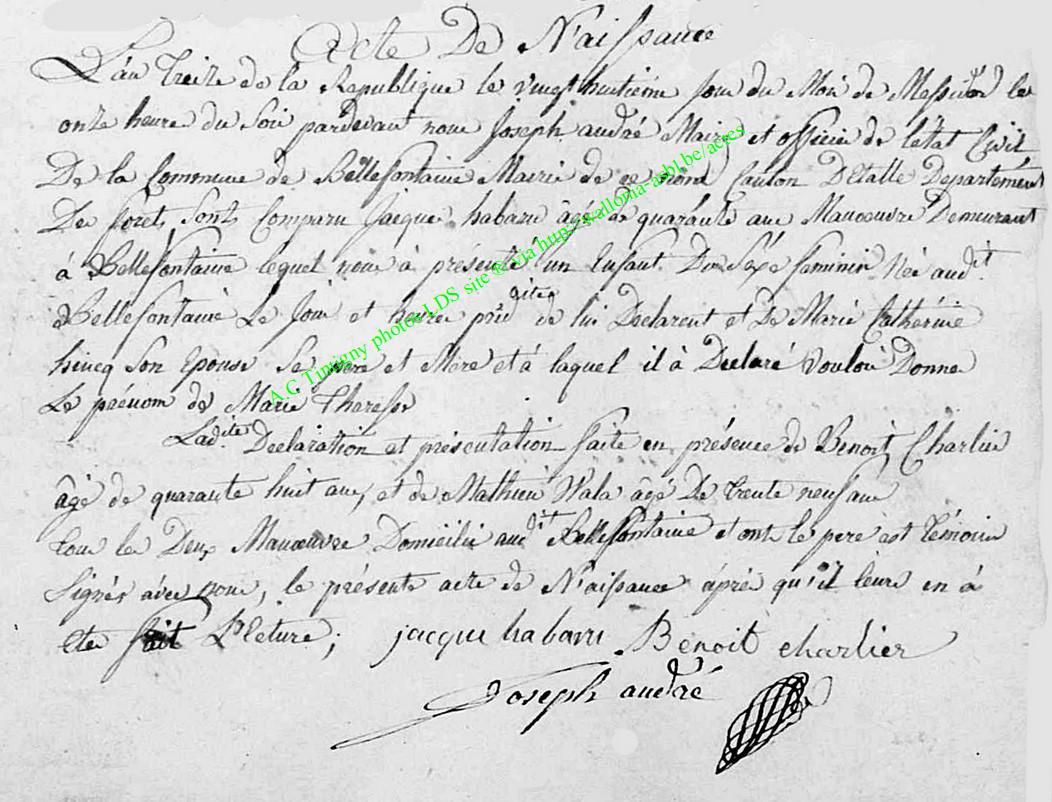 Acte De Naissance
L'an treize de la Republique le vingt huitiéme jour du Moi de Messidor les
onze heure du Soir pardevant nous Joseph andré Maire et officier de létat Civil
De la Commune de Bellefontaine Mairie de ce nom Canton D'Etalle Departément
Des forêts Sont Comparu Jacque habaru âgé de quarante ans Manoeuvre Demeurant
à Bellefontaine lequel nous à présenté un Enfant Du Sexe feminin Née audit
Bellefontaine Le Jour et heure prédites de lui Declarent et De Marie Catherine
hincq Son Epouse Se pere et Mere et à laquel il à Declaré vouloir Donne
Le prénom de Marie Therese
Ladite Declaration et présentation faite en présence de Benoit Charlier
âgé de quarante huit ans, et de Mathieu Wala âgé De trente neuf ans
tous les Deux Manoeuvre Domicilié audit Bellefontaine et ont le pere est témoin
Signés avée nous, le présente acte de Naissance aprés qu'il leure en à
eté fait Lecture;
jacque habaru Benoit charlier
Joseph andré
A.G Tintigny photos LDS site ® via http://walloma-asbl.be/actes